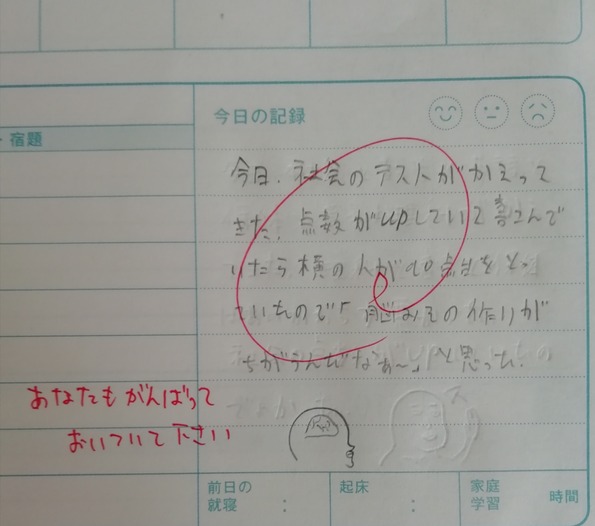 ・宿題
今日の記録
今日、社会のテストがかえって
きた。点数がupしていて喜こんで
いたら横の人が90点台をとっ
ていたので「脳みその作りが
ちがうんだなぁ〜」と思った。
あなたもがんばって
おいついて下さい
前日の
就寝 :
起床 :
家庭
学習 時間